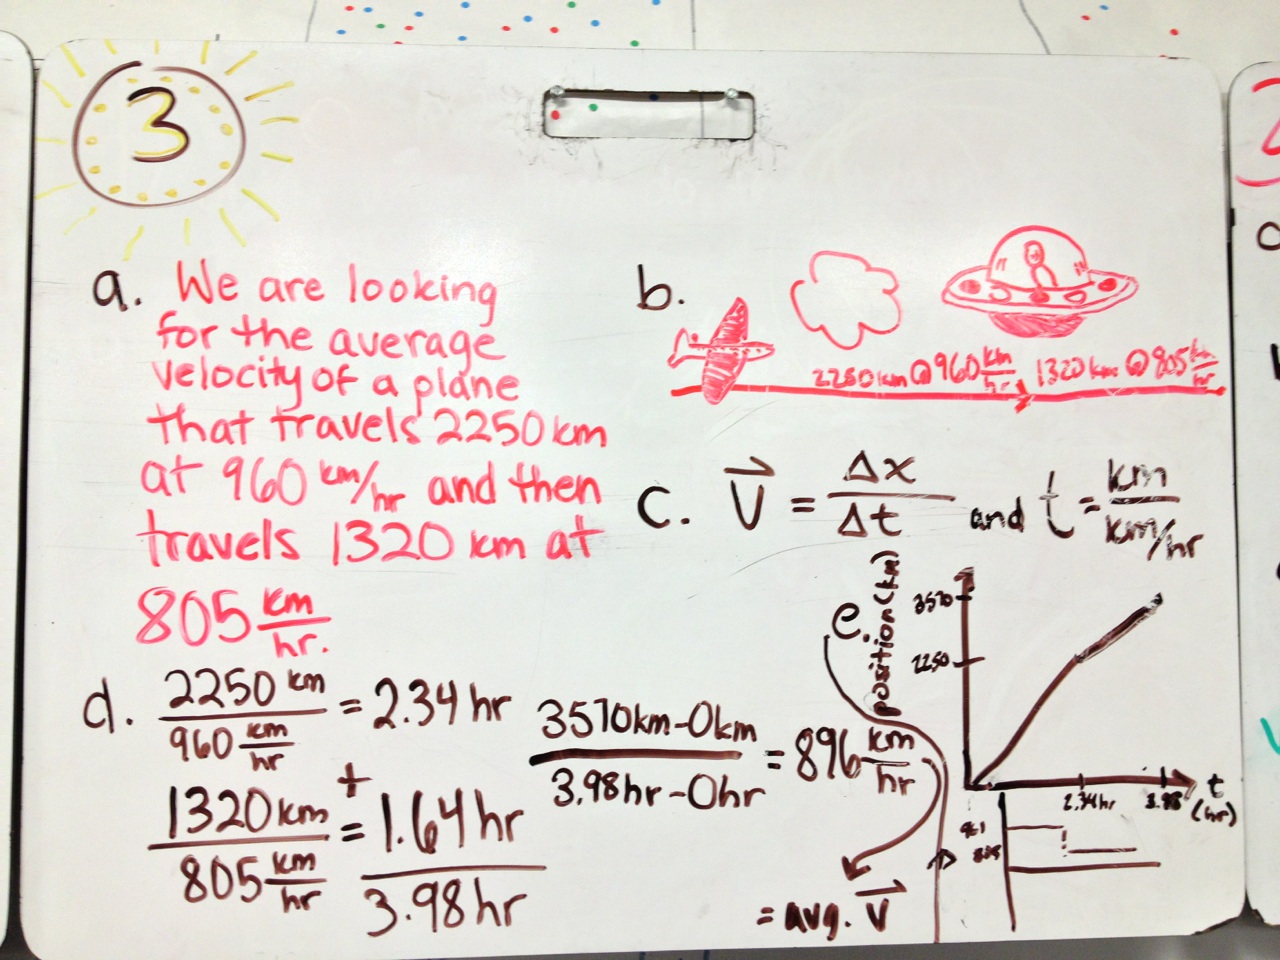 3
a. We are looking
for the average
velocity of a plane
that travels 2250 km
at 960 km/hr and then
travels 1320 km at
805 km/hr.
b.
2250 km @ 960 km/hr 1320 km @ 805 km/hr
c. V = Δx/Δt and t = km/km/hr
d. 2250 km / 960 km/hr = 2.34 hr
+
1320 km / 805 km/hr = 1.64 hr
3.98 hr
3570 km - 0 km / 3.98 hr - 0 hr = 896 km/hr
= avg. V
e.
position (km)
3570
2250
2.34 hr 3.98 t (hr)
805